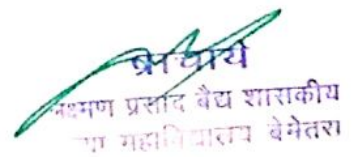 प्राचार्य
लक्ष्मण प्रसाद बैद्य शासकीय
महाविद्यालय बेमेतरा